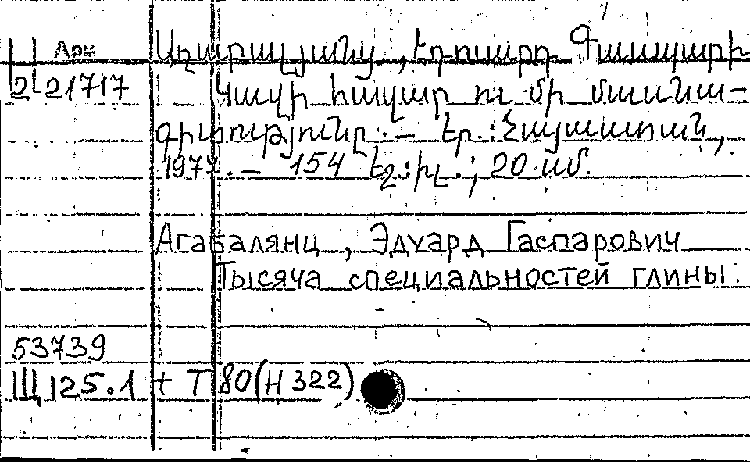 Ц Арм Աղաբալյանց, Էդուարդ Գասպարի
2 21717 Կավի հազար ու մի մասնա-
գիտությունը.– Եր.: Հայաստան,
197 .– 154 էջ:իլ.; 20 սմ.
Агабалянц, Эдуард Гаспарович
Тысяча специальностей глины.
53739
Щ125.1 + Т80(Н322)